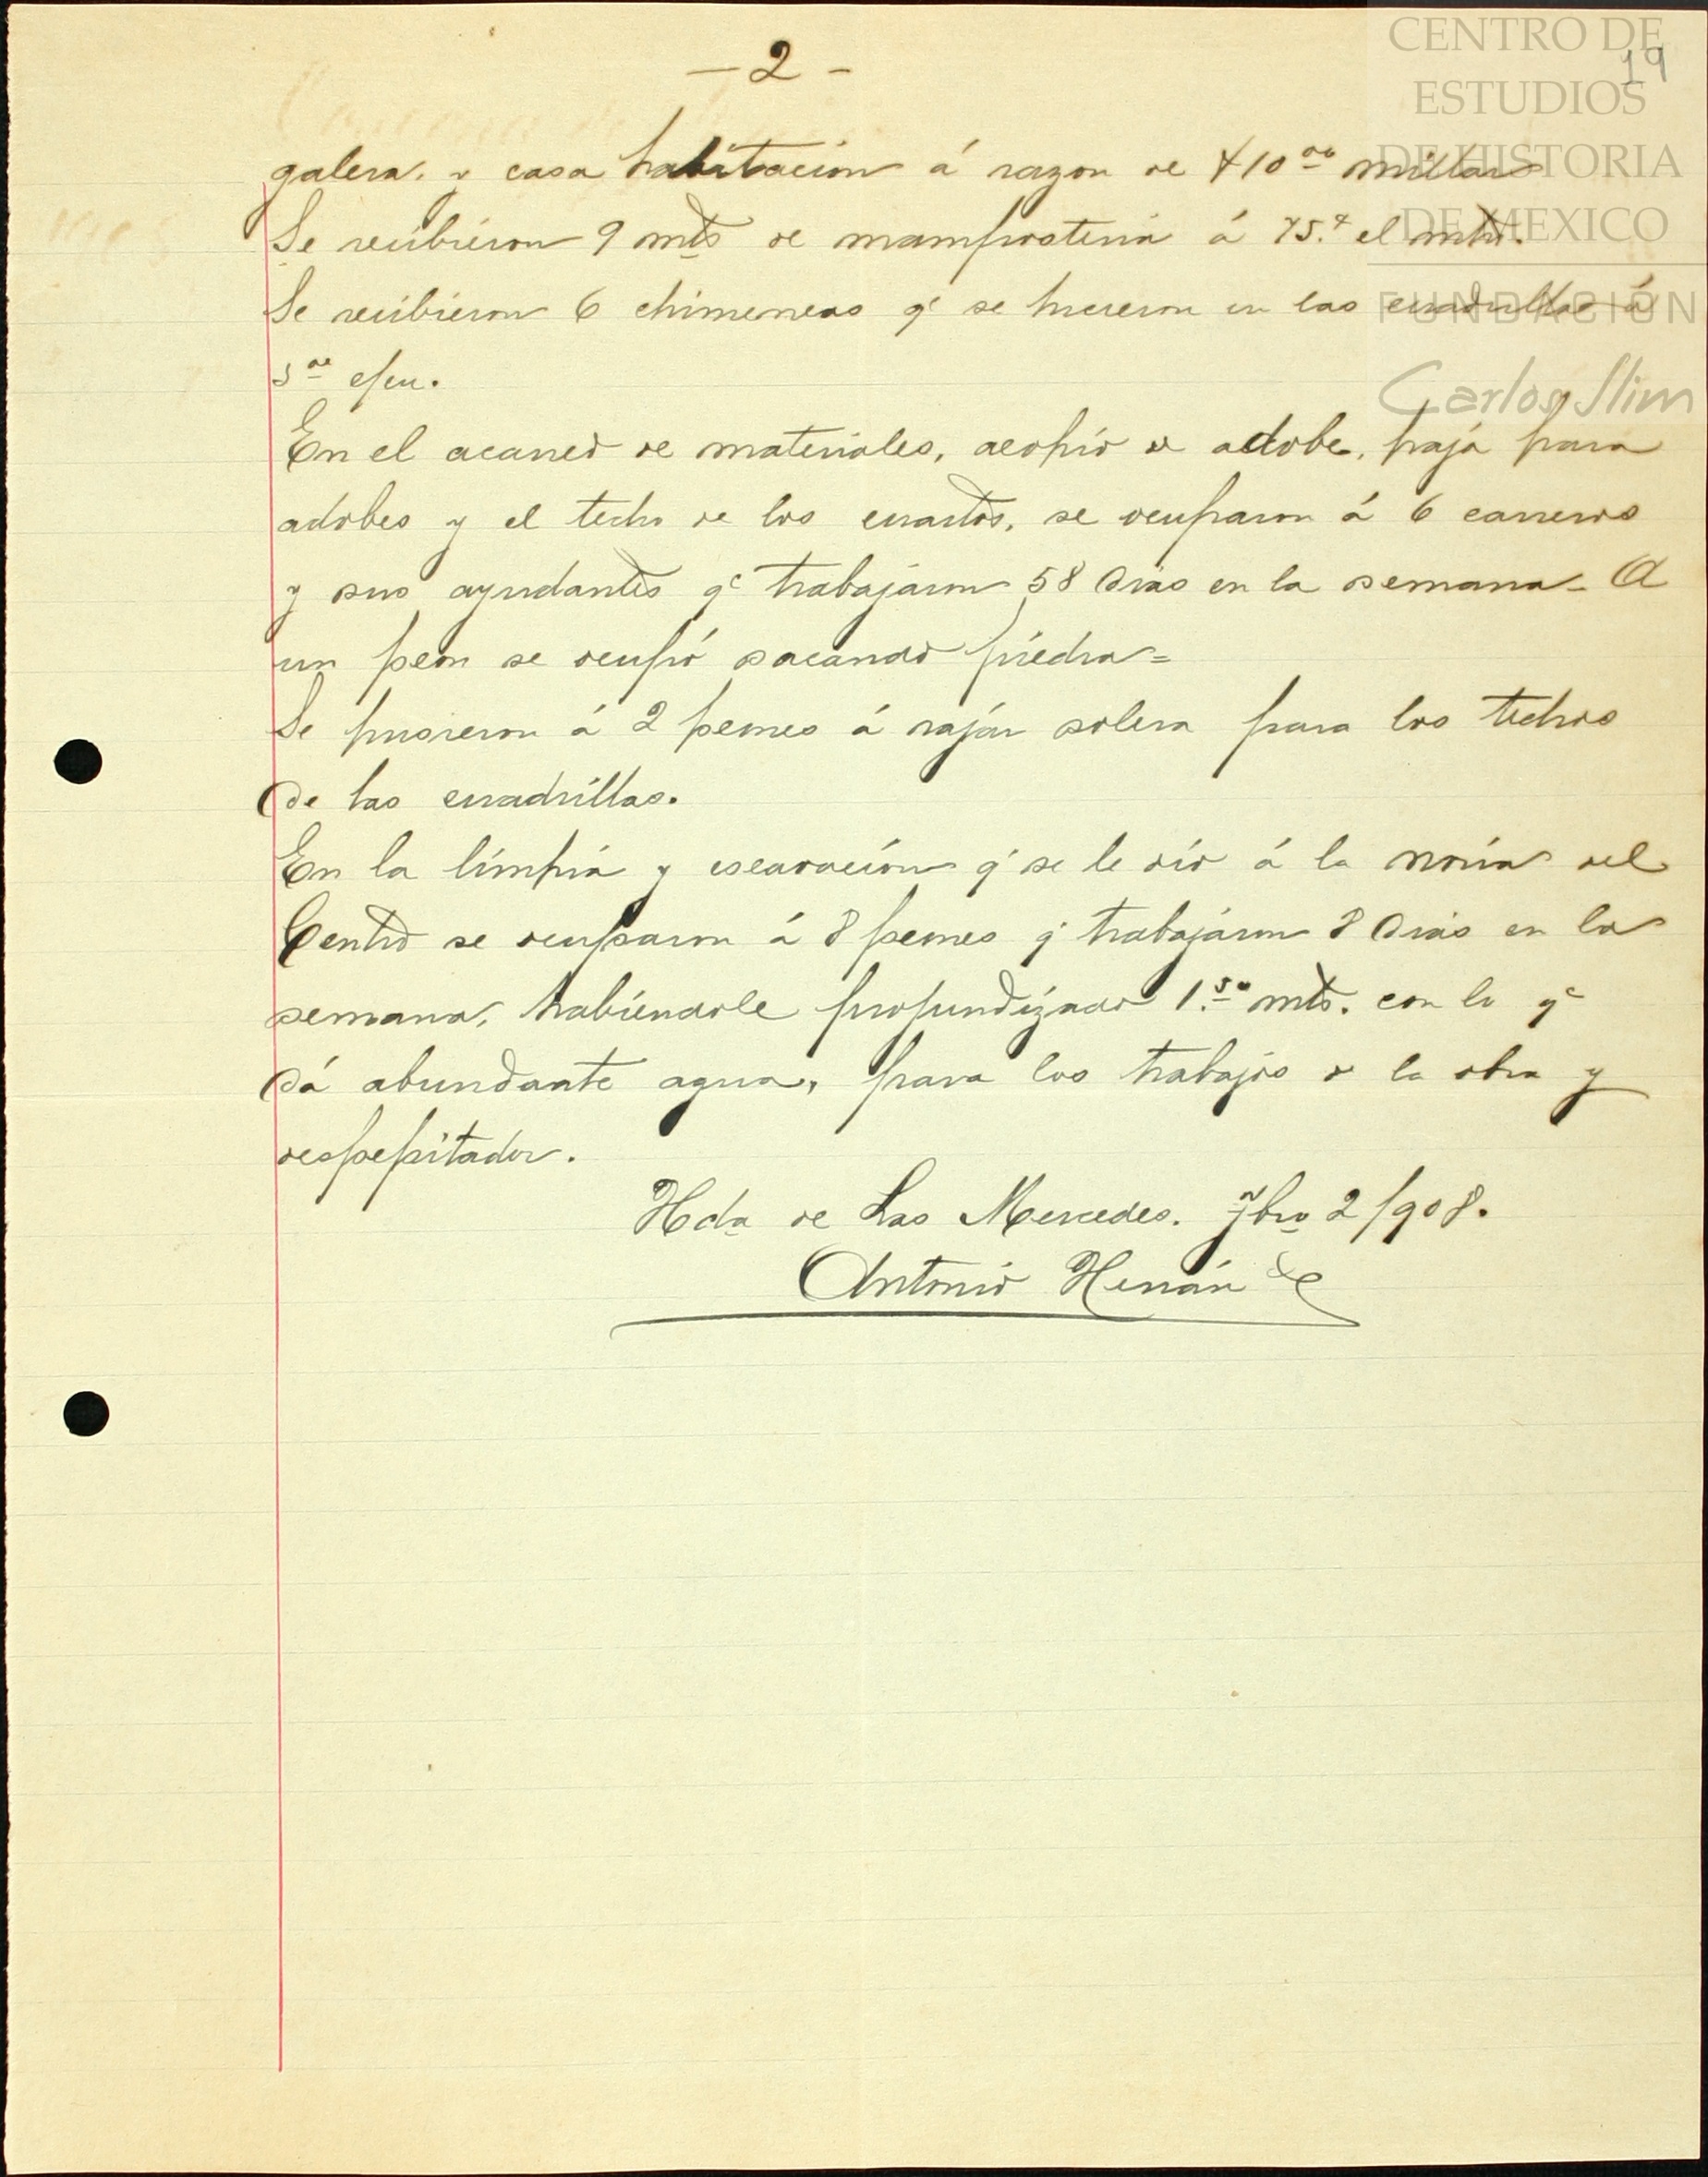 CENTRO DE
ESTUDIOS
DE HISTORIA
DE MEXICO
FUNDACIÓN
Carlos Slim
19
— 2 -
galera. y casa habitacion á razon de $10.00 millar
Se recibieron 9 mts de mamposteria á 75.¢ el mtro.
Se recibieron 6 chimeneas qe se hicieron en las cuadrillas á
En el acarreo de materiales, acopio de adobe, paja para
adobes y el techo de los cuartos, se ocuparon á 6 carreros
y sus ayudantes qe trabajaron 58 dias en la semana - A
un peon se ocupó sacando piedra =
Se pusieron á 2 peones á rajar solera para los techos
de las cuadrillas.
En la limpia y escavación qe se le dió á la noria del
Centro se ocuparon á 8 peones qe trabajáron 8 dias en la
semana, habiendole profundizado 1.50 mts. con lo qe
dá abundante agua, para los trabajos de la obra y
despepitador.
Hda de Las Mercedes. 2/908.
Antonio Hernández